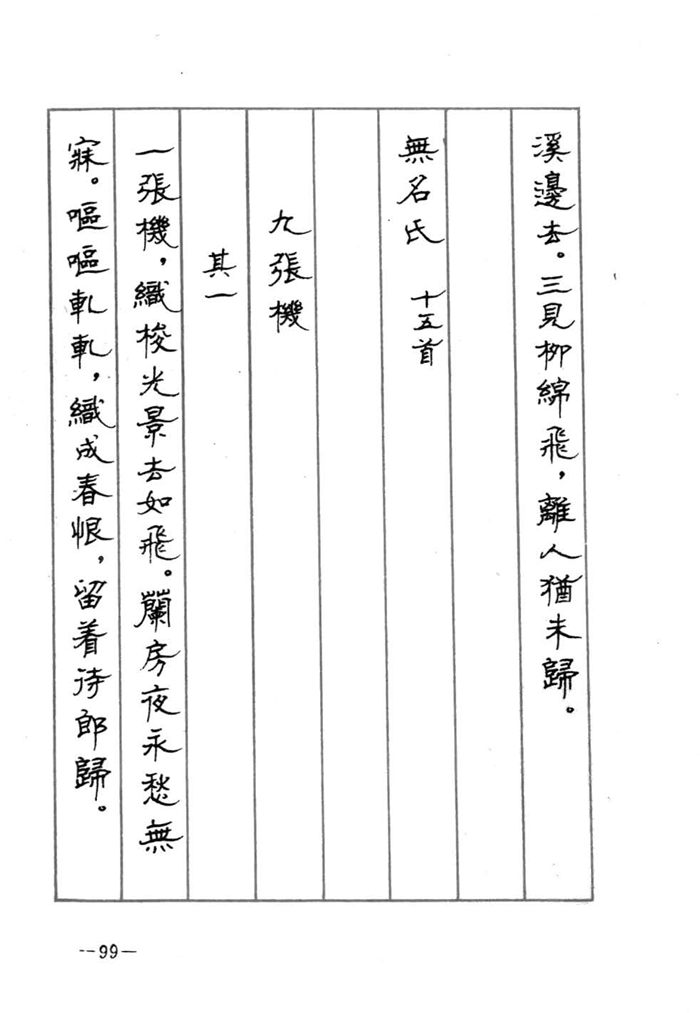 溪邊去。三見柳綿飛，離人猶未歸。
無名氏 十五首
九張機
其一
一張機，織梭光景去如飛。蘭房夜永愁無
寐。嘔嘔軋軋，織成春恨，留着待郎歸。
--99—